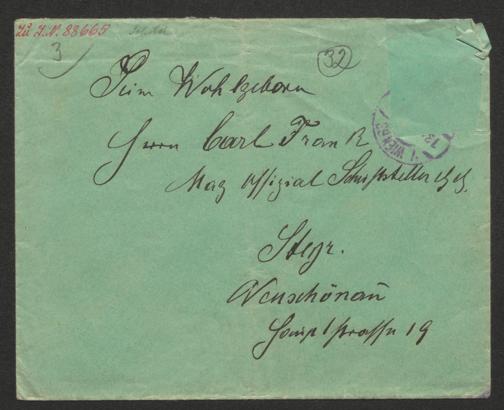 Zu I.N. 88665
3
32
WIEN
13.
Seiner Wohlgeborn
Herrn Carl Frank
Mag Offizial Schriftsteller etc etc.
Steyr.
Neuschönau
Hauptstrasse 19